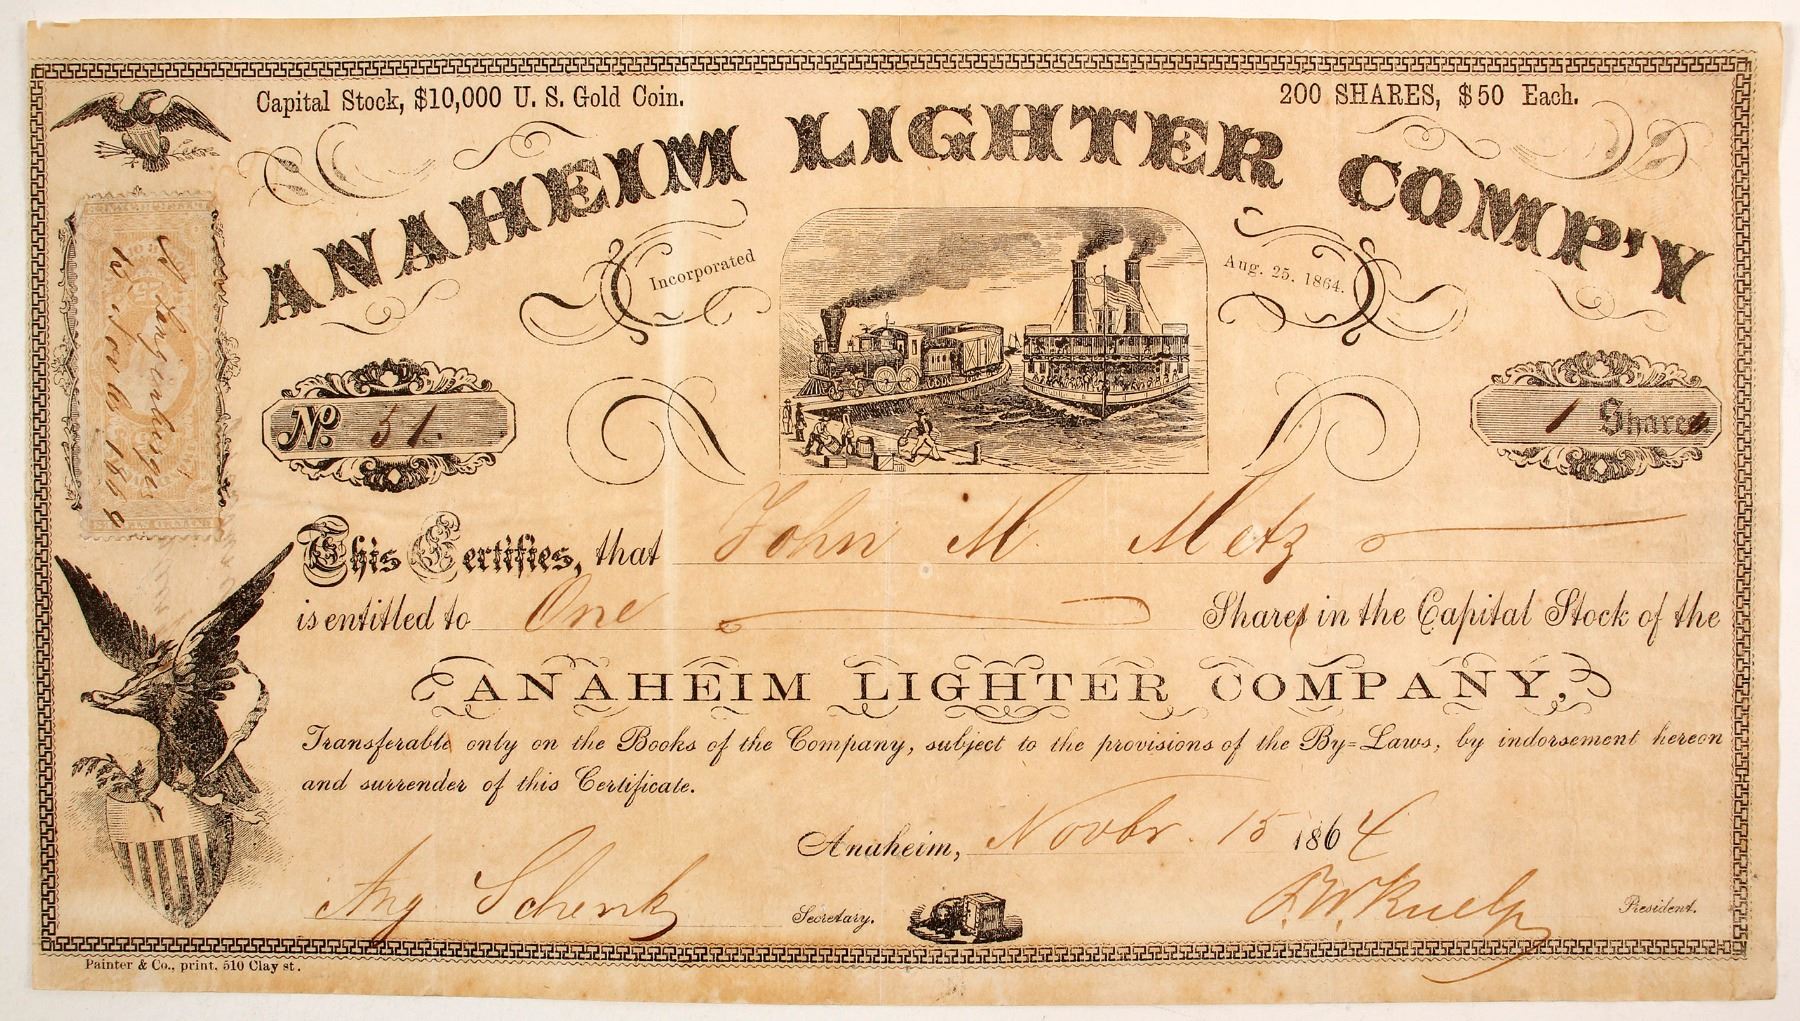 Capital Stock, $10,000 U. S. Gold Coin.
200 SHARES, $50 Each.
ANAHEIM LIGHTER COMP'Y
Incorporated
Aug. 25, 1864.
No. 51.
1 Shares
This Certifies, that John M. Metz
is entitled to One Shares in the Capital Stock of the
ANAHEIM LIGHTER COMPANY,
Transferable only on the Books of the Company, subject to the provisions of the By=Laws, by indorsement hereon
and surrender of this Certificate.
Anaheim, Novbr. 15 1864
Aug Schenk Secretary.
President.
Painter & Co., print. 510 Clay st.